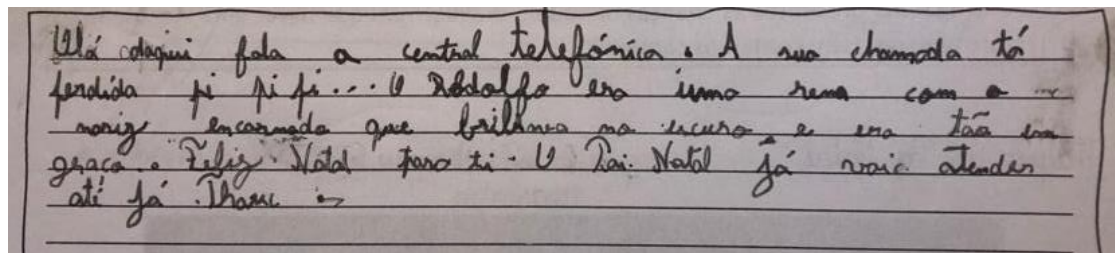 Olá daqui fala a central telefónica. A sua chamada tá
perdida pi pi pi... O Rodolfo era uma rena com o
nariz encarnado que brilhava no escuro e era tão en
graça. Feliz Natal para ti. O Pai Natal já vai atender
até já.